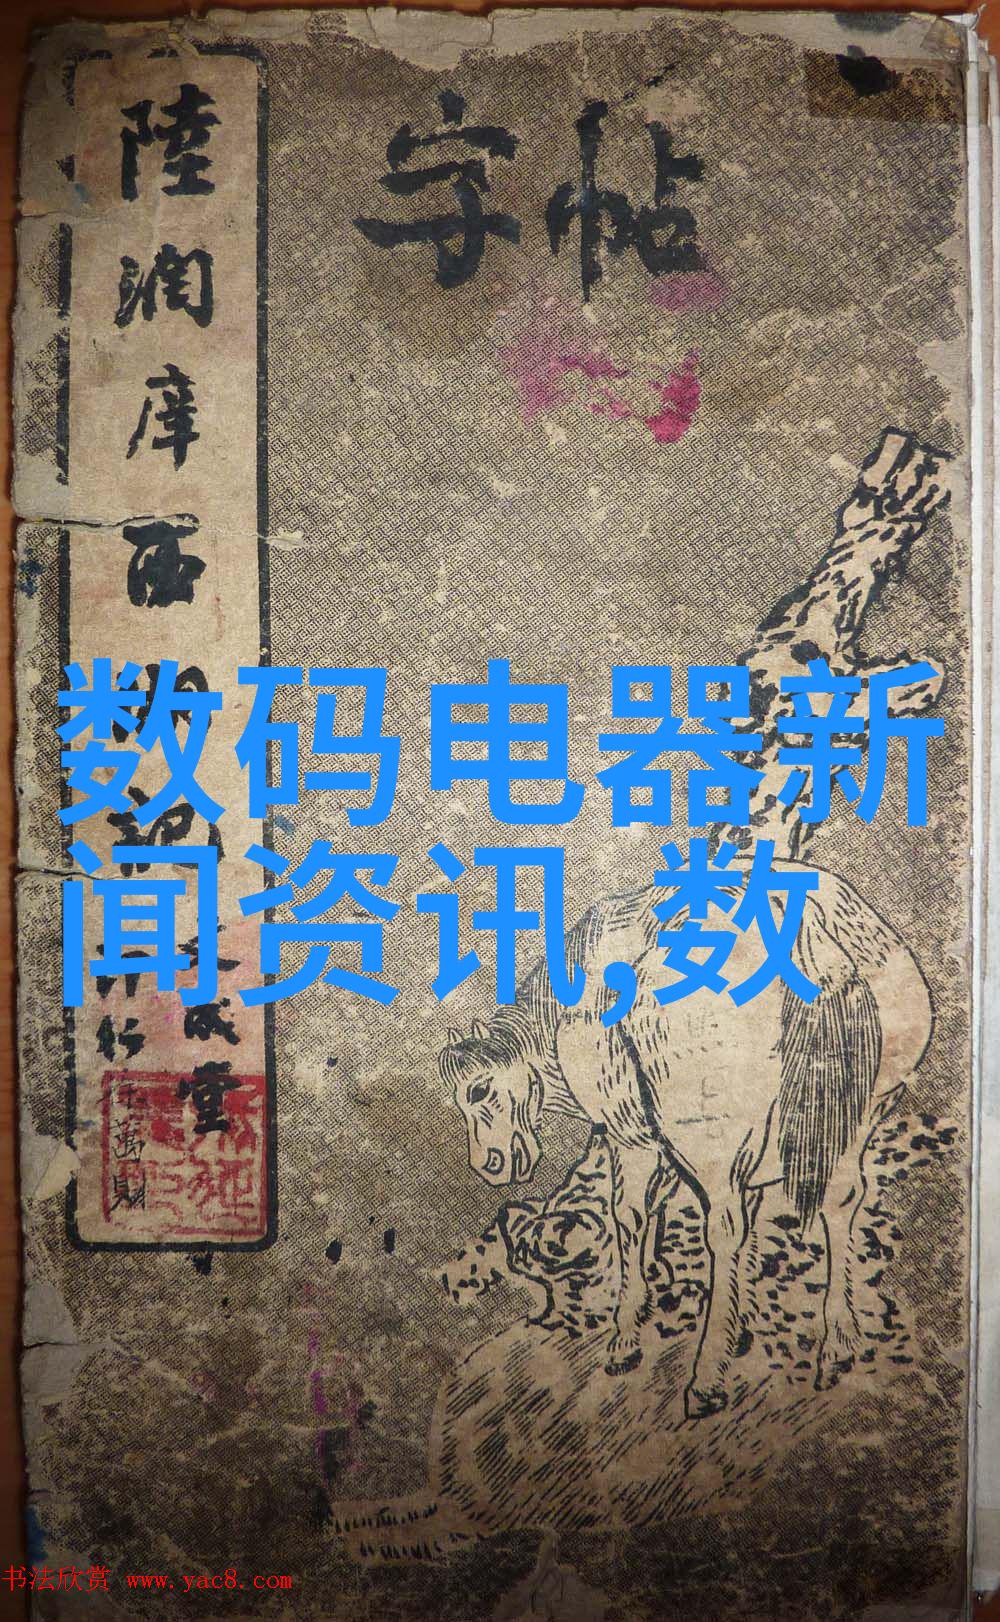 字帖
陸润庠西湖记
成堂
萬財
数码电器新
闻资讯,数
书法欣赏 www.yac8.com